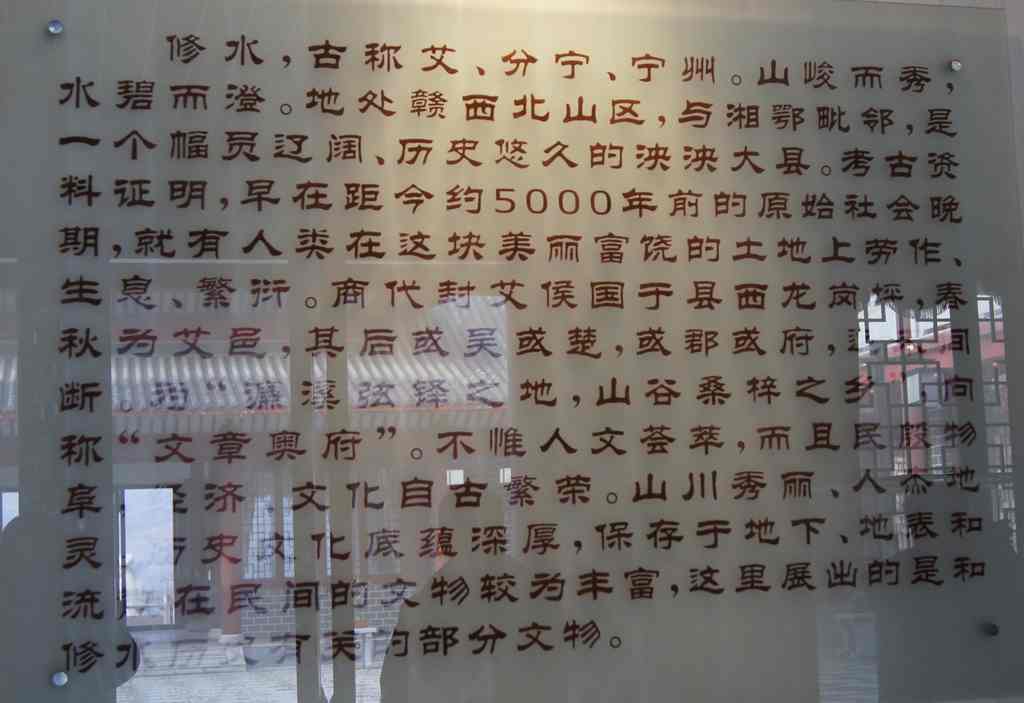 修水，古称艾、分宁、宁州。山峻而秀，
水碧而澄。地处赣西北山区，与湘鄂毗邻，是
一个幅员辽阔、历史悠久的泱泱大县。考古资
料证明，早在距今约5000年前的原始社会晚
期，就有人类在这块美丽富饶的土地上劳作、
生息、繁衍。商代封艾侯国于县西龙岗坪，春
秋为艾邑，其后或吴或楚，或郡或府，间
断。为“濂溪弦铎之地，山谷桑梓之乡，向
称“文章奥府”。不惟人文荟萃，而且民殷物
阜，经济、文化自古繁荣。山川秀丽、人杰地
灵，历史文化底蕴深厚，保存于地下、地表和
流在民间的文物较为丰富，这里展出的是和
修水历史有关的部分文物。